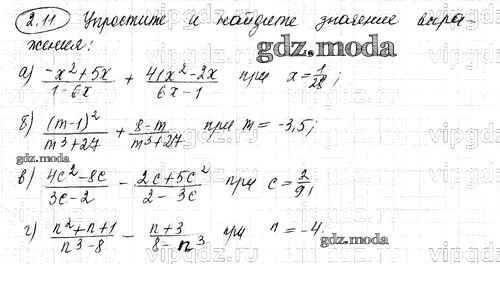 2.11 Упростите и найдите значение выра-
жения:
gdz.moda
а) (-x²+5x)/(1-6x) + (41x²-2x)/(6x-1) при x=1/28;
б) (m-1)²/(m³+27) + (8-m)/(m³+27) при m = -3,5;
gdz.moda
в) (4c²-8c)/(3c-2) - (2c+5c²)/(2-3c) при c=2/9;
г) (n²+n+1)/(n³-8) - (n+3)/(8-n³) при n = -4.
gdz.moda